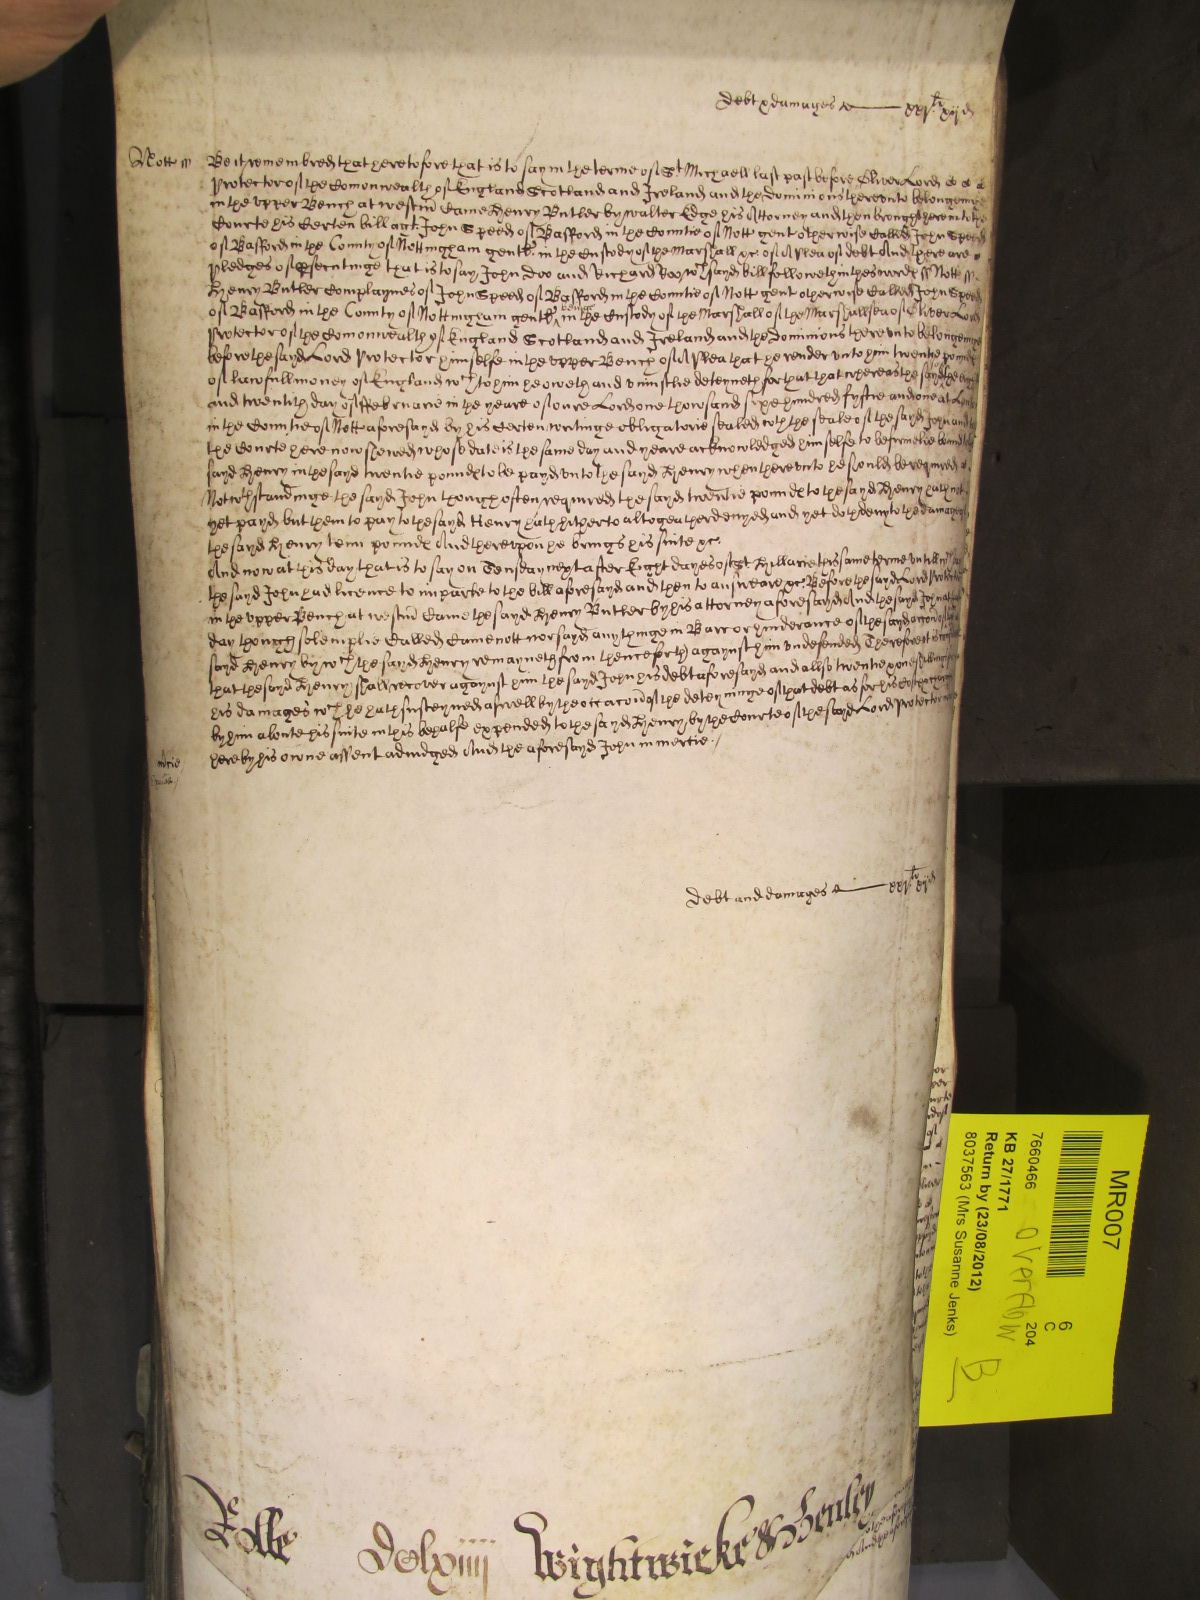 debt & damages xxj li xij d
Nott ss Be it remembred that heretofore that is to say in the terme of St Michaell last past before Oliver Lord
Protector of the Comonwealth of England Scotland and Ireland and the Dominions thereunto belonginge
in the upper Bench at westm Came Henry Butler by Walter Edge his Attorney and then brought here into the
Courte his Certen bill agt John Speed of Basford in the Countie of Nott gent otherwise Called John Speed
of Basford in the County of Nottingham gentl in the Custody of the Marshall &c of A Plea of debt And there are
pledges of prsecutinge that is to say John Doo and Richard Roo wch sayd bill followeth in these words ss Nott ss
Henry Butler Complaynes of John Speed of Basford in the Countie of Nott gent otherwise Called John Speed
of Basford in the County of Nottingham gentl beinge in the Custody of the Marshall of the Marshallsea of Oliver Lord
Protector of the Comonwealth of England Scotland and Ireland and the Dominions thereunto belonginge
before the sayd Lord Protector himselfe in the upper Bench of A Plea that he render unto him twentie pounds
of lawfull money of England wch to him he oweth and uniustlie deteyneth for that that whereas the sayd
and twentith day of Februarie in the yeare of oure Lord one thowsand sixe hundred fyftie and one at
in the Countie of Nott aforesayd by his Certen writinge obligatorie sealed wth the seale of the sayd John and to
the Courte here now shewed whose date is the same day and yeare acknowledged himselfe to be firmelie bound
sayd Henry in the sayd twentie pounds to be payd unto the sayd Henry when thereunto he should be required
Notwthstandinge the sayd John though often required the sayd twentie pounds to the sayd Henry hath not
yet payd but them to pay to the sayd Henry hath hitherto altogeather denyed and yet doth deny to the damage of
the sayd Henry tenn pounds And thereupon he brings his suite &c
And now at this day that is to say on Tewsday next after Eight dayes of St Hillarie this same terme untill
the sayd John had licence to imparle to the bill aforesayd and then to answeare &c Before the sayd Lord Protector
in the upper Bench at westm Came the sayd Henry Butler by his attorney aforesayd And the sayd John
day though solemplie Called Came nott nor sayd any thinge in Barr or hinderance of the sayd accion of the
sayd Henry by wch the sayd Henry remayneth from thenceforth against him undefended Therefore it is
that the sayd Henry shall recover against him the sayd John his debt aforesayd and allso twentie one shillings
his damages wch he hath susteyned aswell by the occacion of the deteyninge of that debt as for his costs
by him aboute his suite in this behalfe expended to the sayd Henry by the Courte of the sayd Lord Protector
here by his owne assent adiudged And the aforesayd John in mercie
mercie
debt and damages xxj li xij d
Rolle Dclxiiij Wightwicke & Henley
MR007
7660466
6
C
204
KB 27/1771
overflow
Return by (23/08/2012)
8037563 (Mrs Susanne Jenks)
B